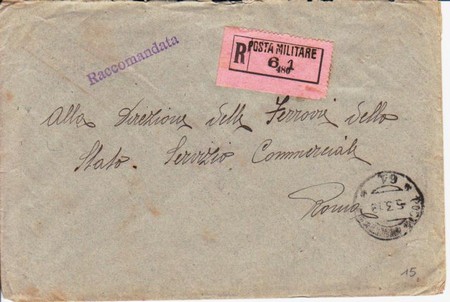 Raccomandata
R POSTA MILITARE
6 1
486
Alla Direzione delle Ferrovie dello
Stato. Servizio Commerciale
Roma
15